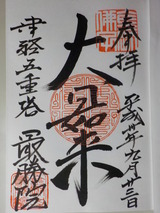 奉拝
平成廿年九月廿三日
大日如来
津軽五重塔
最勝院